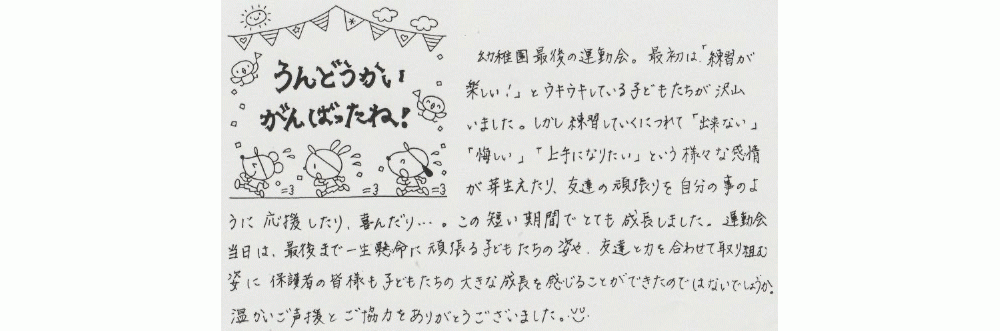 うんどうかい
がんばったね！
幼稚園最後の運動会。最初は「練習が
楽しい！」とウキウキしている子どもたちが沢山
いました。しかし練習していくにつれて「出来ない」
「悔しい」「上手になりたい」という様々な感情
が芽生えたり、友達の頑張りを自分の事のよ
うに応援したり、喜んだり…。この短い期間でとても成長しました。運動会
当日は、最後まで一生懸命に頑張る子どもたちの姿や、友達と力を合わせて取り組む
姿に保護者の皆様も子どもたちの大きな成長を感じることができたのではないでしょうか？
温かいご声援とご協力をありがとうございました。